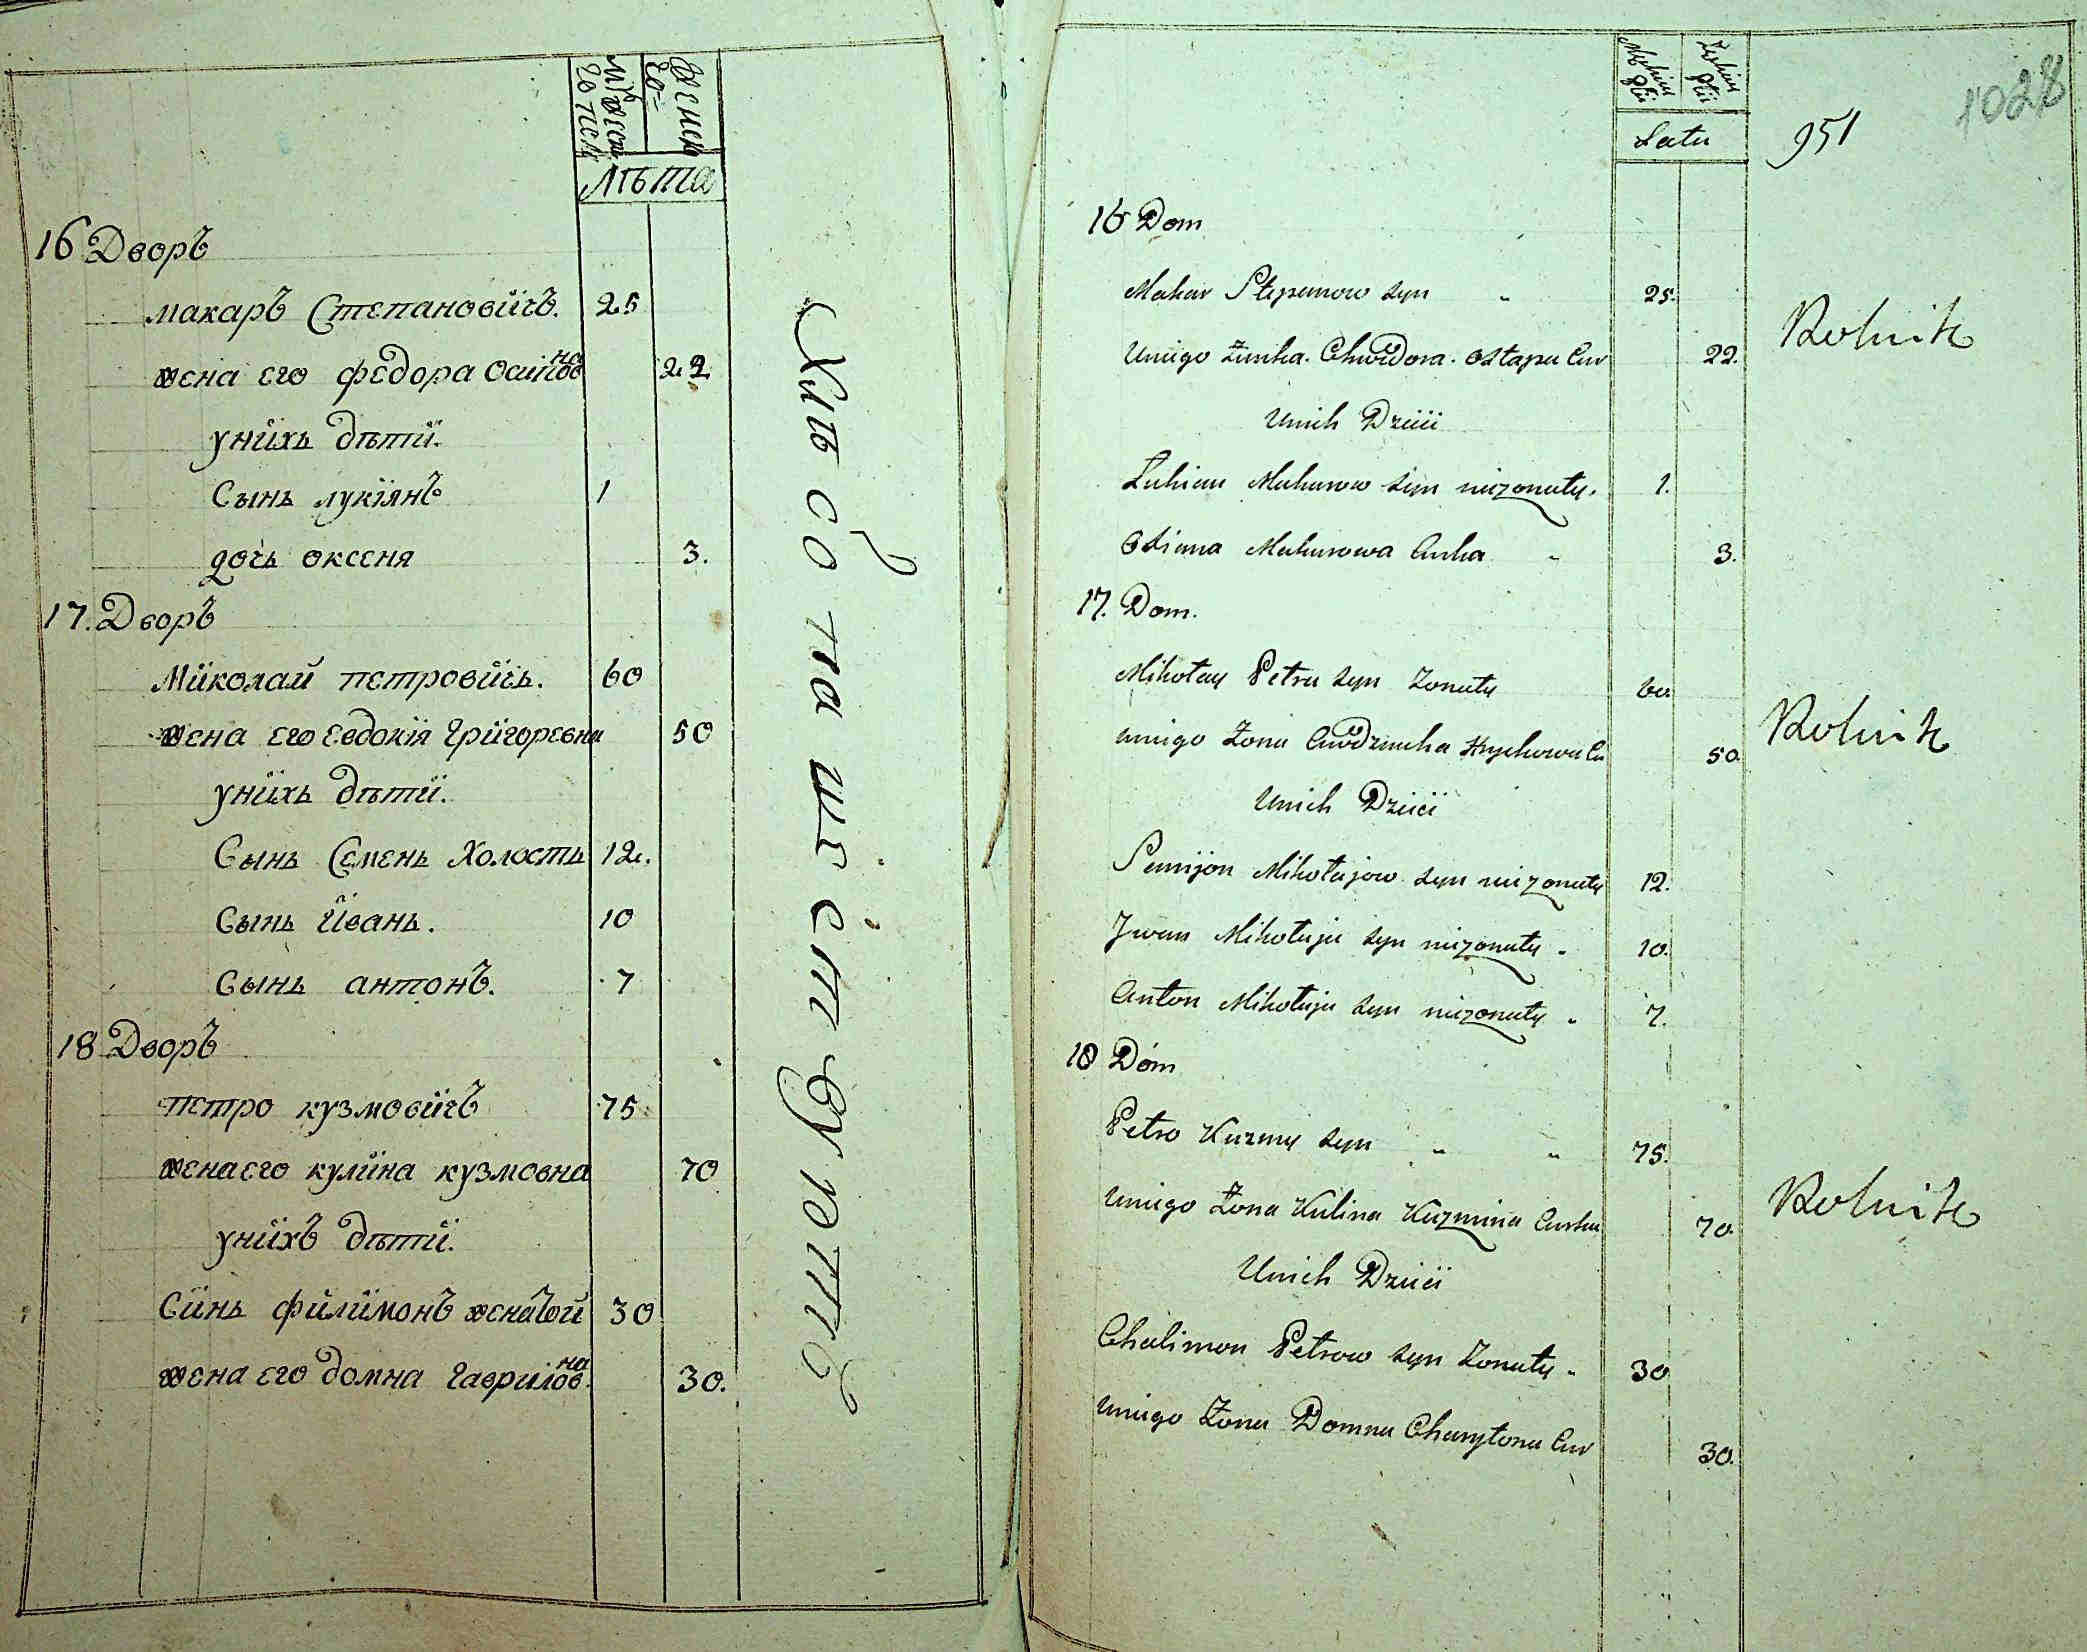 мужеска го пола
женска го=
лѣта
16 Дворъ
макаръ Степановичъ. 25
жена его федора осипов на 22
унихъ дѣти.
Сынъ лукіянъ 1
дочь оксеня 3.
17. Дворъ
Миколай петровичь. 60
жена его евдокія григоревна 50
унихь дѣти.
Сынь Семень холость 12.
Сынь Иівань. 10
Сынь антонъ. 7
18 Дворъ
петро кузмовичъ 75
жена его кулина кузмовна 70
унихъ дѣти.
Синь филимонъ женатой 30
жена его домна гаврилов на 30.
Хлѣбопашествуютъ
Męskiey płci
Żeńskiey płci
Lata
951
1028
16 Dom
Makar Stepanow syn " 25.
Uniego Zonka. Chwiedora. Ostapa Cur 22.
Unich Dzieci
Rolnik
Lukian Makarow syn niezonaty. 1.
Oxiena Makarowa Curka " 3.
17. Dom.
Mikołay Petra syn Zonaty 60.
uniego Zona Hrychowa Cu 50.
Unich Dzieci
Rolnik
Semijon Mikołajow syn niezonaty 12.
Jwan Mikołaja syn niezonaty " 10.
Anton Mikołaja syn niezonaty " 7.
18 Dom
Petro Kuzmy syn " " 75.
uniego Zona Kulina Kuzmina Curka 70.
Unich Dzieci
Rolnik
Chalimon Petrow syn Zonaty " 30
uniego Zona Domna Charytona Cur 30.